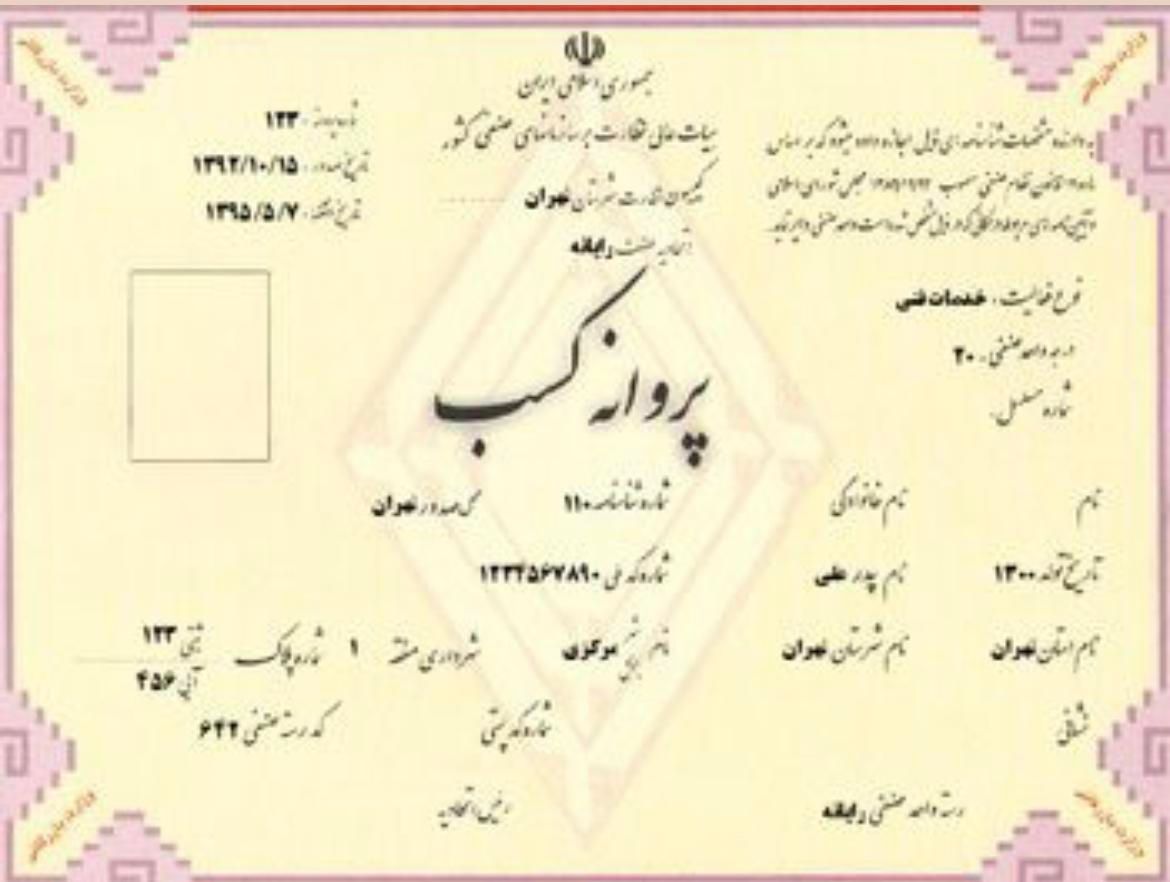 جمهوری اسلامی ایران
هیات عالی نظارت بر سازمانهای صنفی کشور
کمیسیون نظارت شهرستان تهران
اتحادیه صنف رایانه
شماره پروانه : ۱۲۳
تاریخ صدور : ۱۳۹۲/۱۰/۱۵
تاریخ انقضاء : ۱۳۹۵/۵/۷
به دارنده مشخصات شناسنامه ای ذیل اجازه داده میشود که بر اساس
قانون نظام صنفی مصوب مجلس شورای اسلامی
و آیین نامه های مربوطه در مکانی که در ذیل مشخص شده است واحد صنفی دایر نماید.
نوع فعالیت : خدمات فنی
درجه واحد صنفی : ۲۰
شماره مسلسل :
پروانه کسب
نام نام خانوادگی شماره شناسنامه ۱۱۰ محل صدور تهران
تاریخ تولد ۱۳۰۰ نام پدر علی شماره کد ملی ۱۲۳۴۵۶۷۸۹۰
نام استان تهران نام شهرستان تهران نام بخش مرکزی شهرداری منطقه ۱ شماره پلاک ثبتی ۱۲۳
آبی ۴۵۶
نشانی شماره کد پستی کد رسته صنفی ۶۴۲
رسته واحد صنفی رایانه رئیس اتحادیه